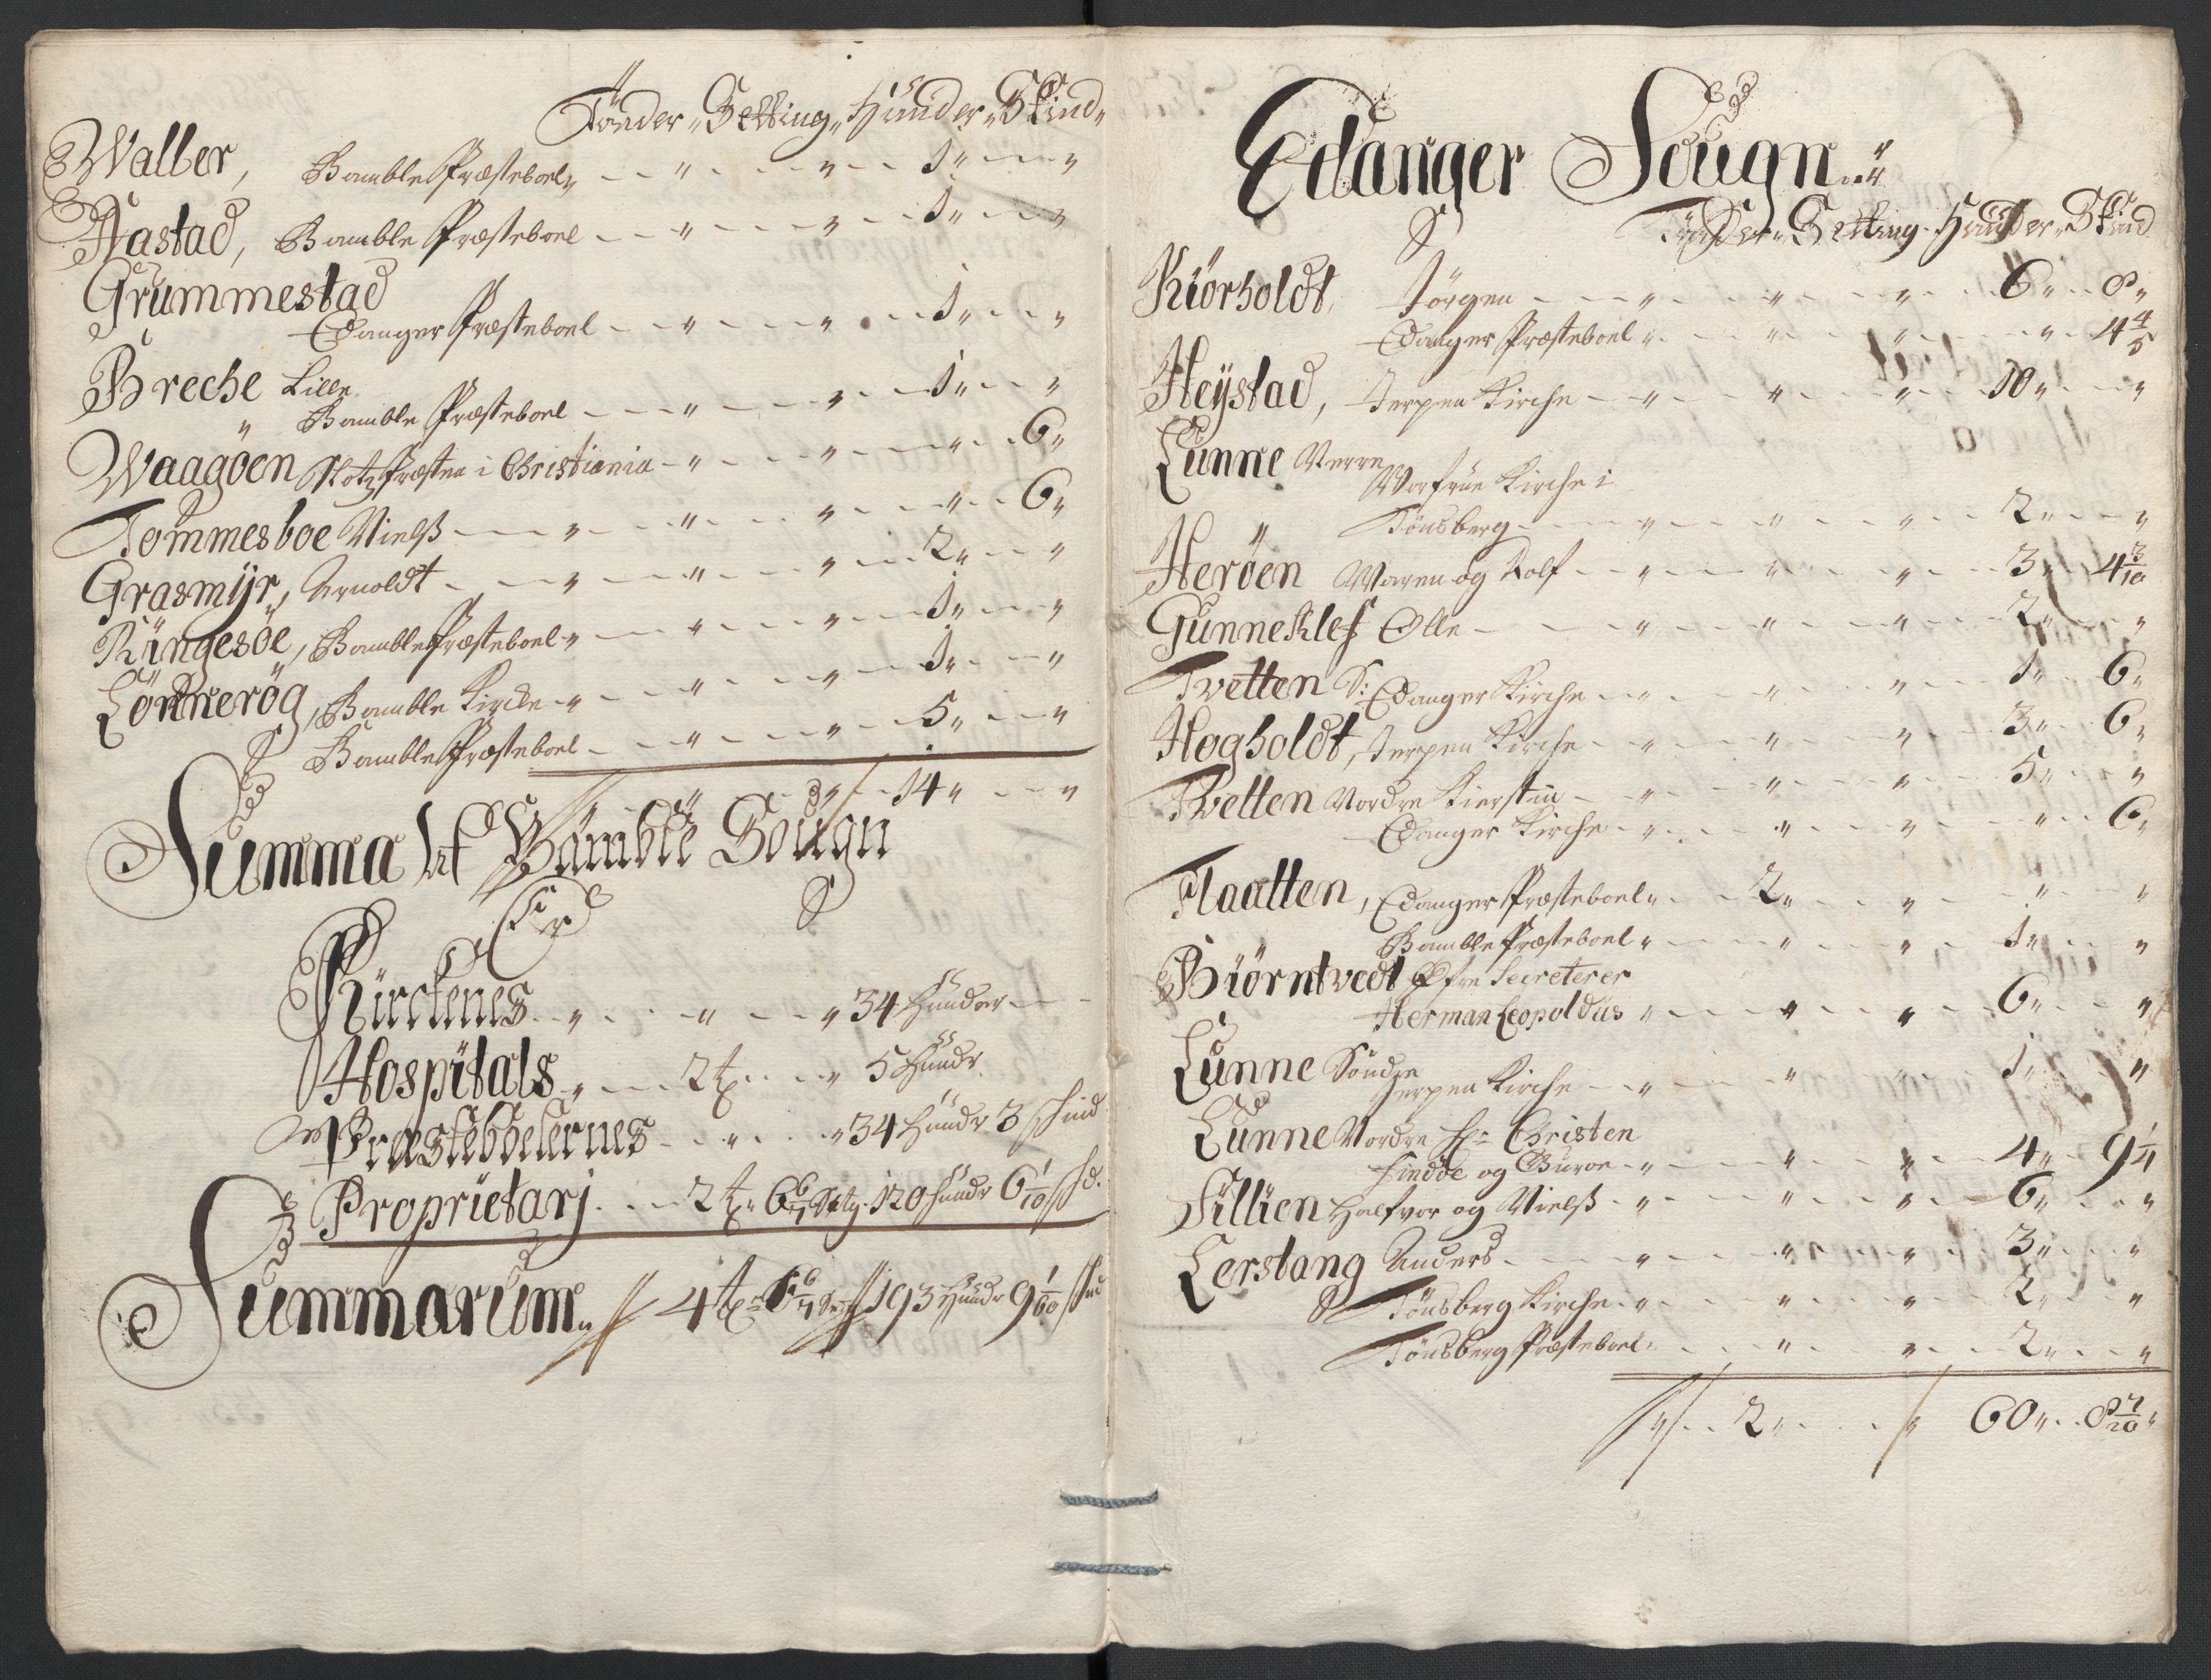 Tønder„ Setting„ Hunder„ Skind„
Walber, Bamble Præsteboel„ „ „ 1„ „
Aastad, Bamble Præsteboel „ „ 1„ „
Grummestad
Edanger Præsteboel „ „ 1„ „
Breche Lille
„ Bamble Præsteboel „ „ 1„ „
Waagöen Slotz Præsten i Christiania „ „ „ 6„
Tommesboe Nielß „ „ „ „ 6„
Grasmÿr, Arnoldt „ „ „ 2„ „
Ringesöe, Bamble Præsteboel „ „ „ 1„ „
Lönnerög, Bamble Kircke „ „ „ 1„ „
Bamble Præsteboel „ „ 5„ „
„ „ 14„ „
Summa Af Bamble Sougn
Er
Kirckenes „ „ „ 34 Hunder
Hospitals „ 2 tr „ 5 Hundr
Præsteboelernes „ „ 34 Hundr 3 Skind
Proprietarj 2 tr 6 6/7 Setg. 120 Hundr 6 1/10 Skd.
Summarum„ 4 tr 6 6/7 Setg 193 Hundr 9 1/10 Skind
Edanger Sougn„
Tönder„ Setting„ Hunder„ Skind
Kiörholdt, Jörgen „ „ „ 6„ 8„
Edanger Præsteboel „ „ „ „ 4 4/5
Heÿstad, Jerpen Kirche „ „ „ 10„ „
Lunne Nerre
Worfrue Kirche i
„ Tönsberg „ „ „ 2„ „
Heröen Maren og Rolf „ „ „ 3„ 4 3/10
Gunneklef Olle „ „ „ 2„ „
Tvetten S: Edanger Kirche „ „ „ 1„ 6„
Hogholdt, Jerpen Kirche „ „ „ 3„ 6„
Tvetten Nordre Kierstin „ „ „ 5„ „
Edanger Kirche „ „ „ „ 6„
Flaatten, Edanger Præsteboel„ 2„ „ „ „
Bamble Præsteboel „ „ „ 1„ „
Biörntvedt Efn Secreterer
Herman Leopoldus „ „ „ 6„ „
Lunne Söndre
Jerpen Kirche „ „ „ 1„ „
Lunne Nordre Hr: Christen
Lindde og Buroe „ „ „ 4„ 9 1/4
Tillien Halfvor og Nielß „ „ „ 6„ „
Lerstang Anders „ „ „ 3„ „
Tönsberg Kirche „ „ „ 2„ „
Tönsberg Præsteboel „ „ „ 2„ „
„ 2„ „ 60„ 8 7/20„